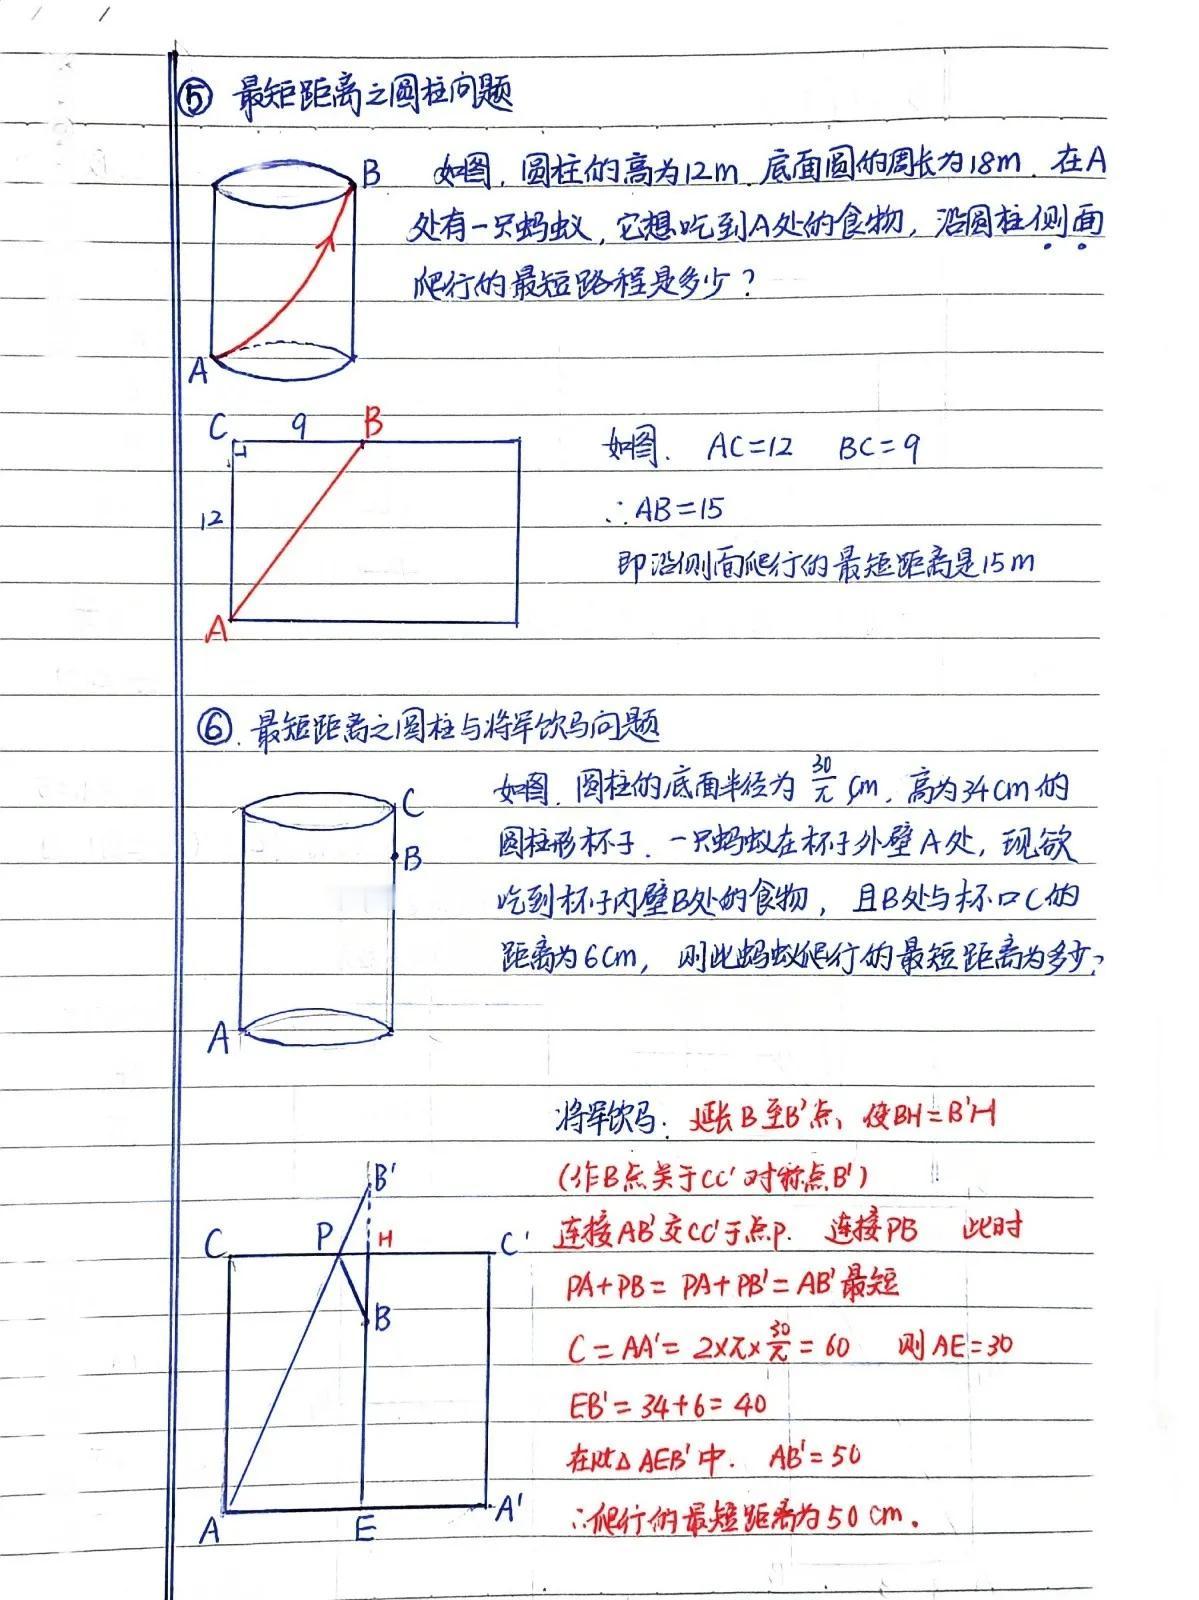 ⑤ 最短距离之圆柱问题
B
A
如图，圆柱的高为12m，底面圆的周长为18m．在A
处有一只蚂蚁，它想吃到A处的食物，沿圆柱侧面
爬行的最短路程是多少？
C 9 B
12
A
如图． AC=12 BC=9
∴AB=15
即沿侧面爬行的最短距离是15m
⑥．最短距离之圆柱与将军饮马问题
C
B
A
如图．圆柱的底面半径为 30/π cm，高为34cm的
圆柱形杯子．一只蚂蚁在杯子外壁A处，现欲
吃到杯子内壁B处的食物，且B处与杯口C的
距离为6cm，则此蚂蚁爬行的最短距离为多少？
将军饮马：延长B至B'点，使BH=B'H
(作B点关于CC'对称点B')
连接AB'交CC'于点P． 连接PB 此时
PA+PB=PA+PB'=AB'最短
C=AA'=2×π×30/π=60 则AE=30
EB'=34+6=40
在Rt△AEB'中． AB'=50
∴爬行的最短距离为50cm．
B'
C P H C'
B
A E A'